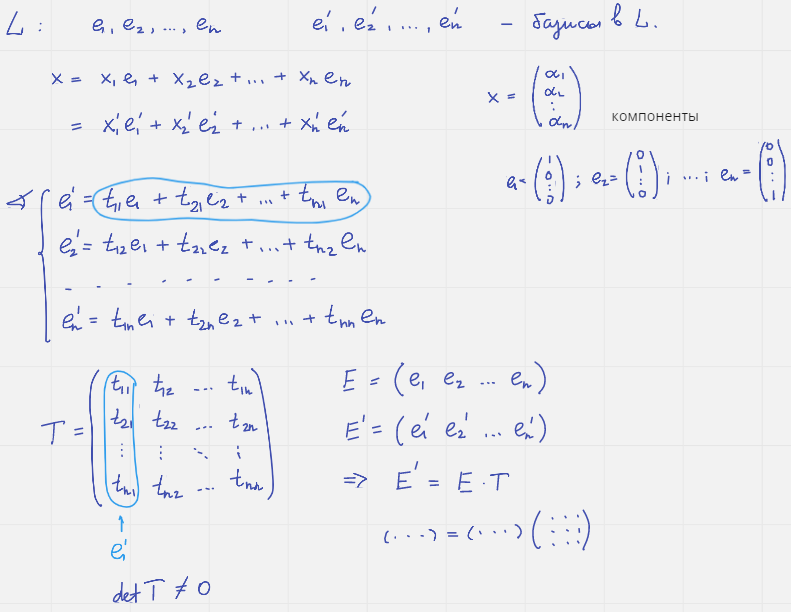 L : e₁, e₂, ..., eₙ e₁′, e₂′, ..., eₙ′ – базисы в L.
x = x₁e₁ + x₂e₂ + ... + xₙeₙ
= x₁′e₁′ + x₂′e₂′ + ... + xₙ′eₙ′
x = (α₁ α₂ ⋮ αₙ)
компоненты
e₁ = (1 0 ⋮ 0) ; e₂ = (0 1 ⋮ 0) ; ... ; eₙ = (0 0 ⋮ 1)
e₁′ = t₁₁e₁ + t₂₁e₂ + ... + tₙ₁eₙ
e₂′ = t₁₂e₁ + t₂₂e₂ + ... + tₙ₂eₙ
. . . . . . . . . .
eₙ′ = t₁ₙe₁ + t₂ₙe₂ + ... + tₙₙeₙ
T = (t₁₁ t₁₂ ... t₁ₙ
t₂₁ t₂₂ ... t₂ₙ
⋮ ⋮ ⋱ ⋮
tₙ₁ tₙ₂ ... tₙₙ)
e₁′
det T ≠ 0
E = (e₁ e₂ ... eₙ)
E′ = (e₁′ e₂′ ... eₙ′)
⇒ E′ = E · T
(· · ·) = (· · ·) (⋮ ⋮ ⋮)